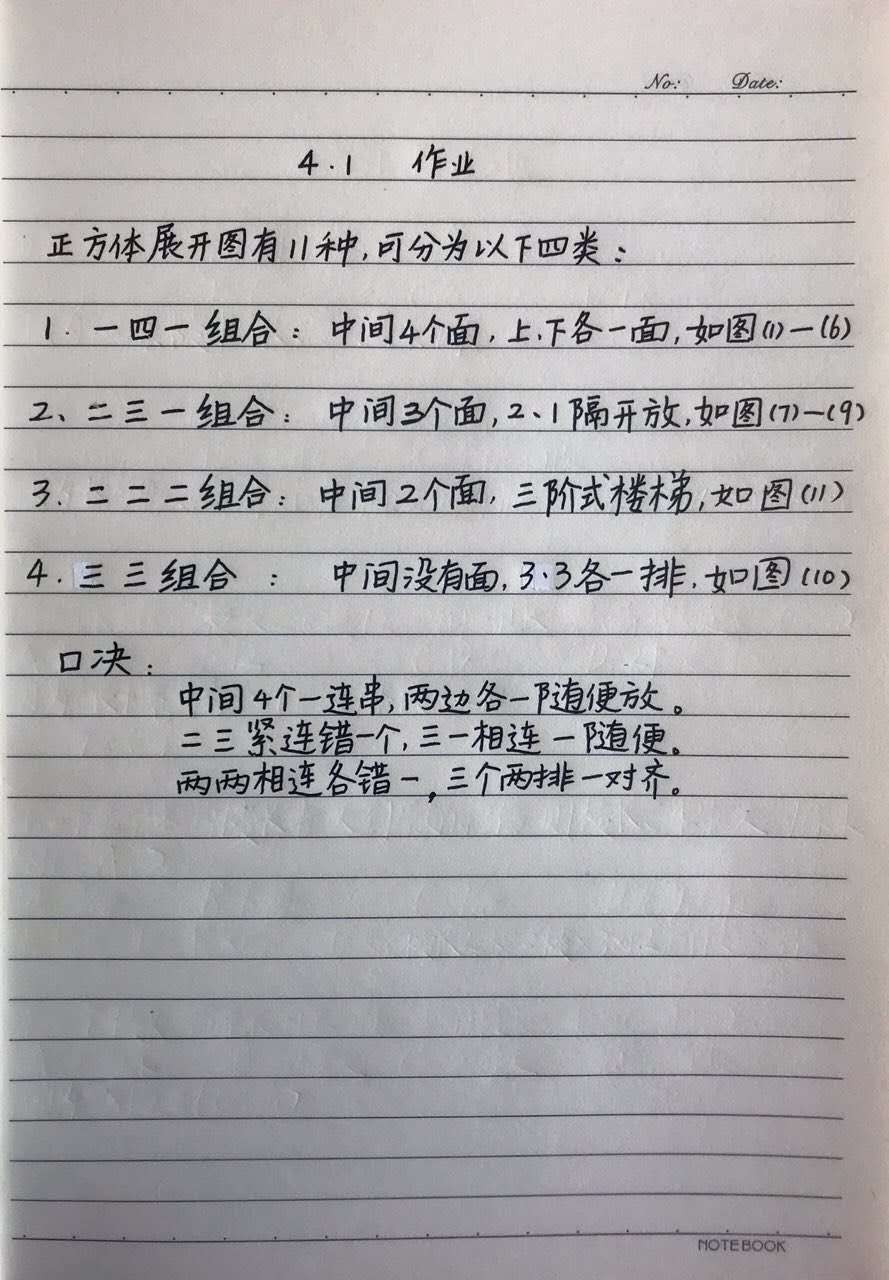 No: Date:
4.1 作业
正方体展开图有11种,可分为以下四类：
1. 一四一组合： 中间4个面,上、下各一面,如图(1)—(6)
2、二三一组合： 中间3个面,2、1隔开放,如图(7)—(9)
3. 二二二组合： 中间2个面, 三阶式楼梯,如图(11)
4. 三三组合 ： 中间没有面,3·3各一排,如图(10)
口决：
中间4个一连串,两边各一随便放。
二三紧连错一个,三一相连一随便。
两两相连各错一,三个两排一对齐。
NOTEBOOK